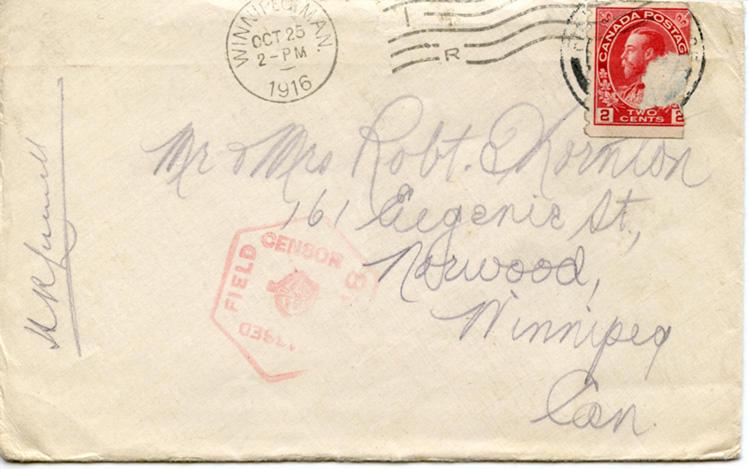 WINNIPEG MAN.
OCT 25
2-PM
1916
I
R
CANADA POSTAGE
2 TWO 2
CENTS
Mr & Mrs Robt. Thornton
161 Eugenie St,
Norwood,
Winnipeg
Can.
FIELD CENSOR